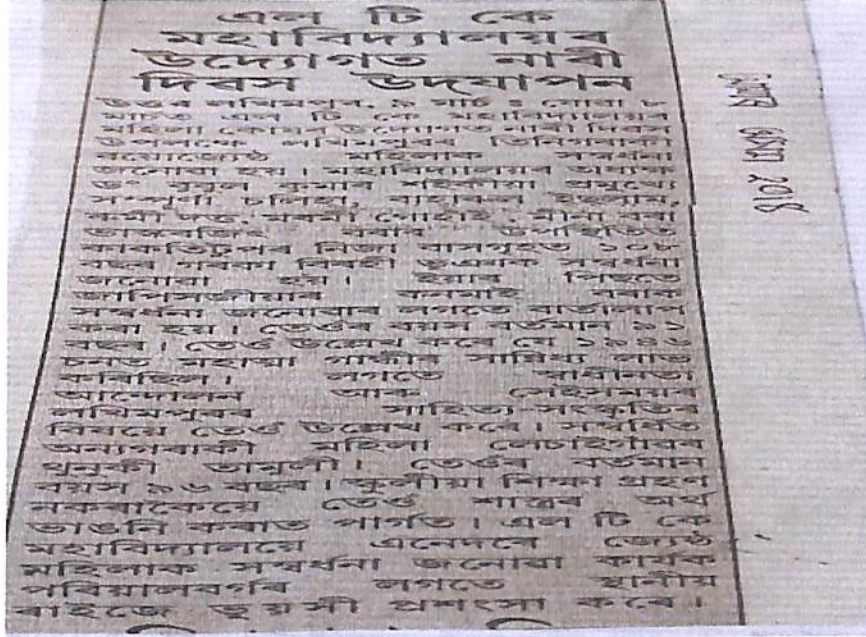 এল টি কে
মহাবিদ্যালয়ৰ
উদ্যোগত নাৰী
দিৱস উদযাপন
উত্তৰ লখিমপুৰ, ৯ মাৰ্চ ঃ যোৱা ৮
মাৰ্চত এল টি কে মহাবিদ্যালয়ৰ
মহিলা কোষৰ উদ্যোগত নাৰী দিৱস
উপলক্ষে লখিমপুৰৰ তিনিগৰাকী
বয়োজ্যেষ্ঠ মহিলাক সম্বৰ্ধনা
জনোৱা হয়। মহাবিদ্যালয়ৰ অধ্যক্ষ
ড° বুবুল কুমাৰ শইকীয়া প্ৰমুখ্যে
সম্পূৰ্ণা চলিহা, বাহাৰুল ইছলাম,
গোহাঁই, মীনা বৰা
বৰাৰ উপস্থিতিত
নিজা বাসগৃহত ১০৮
বছৰ গৰকা বিষহী ভূঞাক সম্বৰ্ধনা
জনোৱা হয়। ইয়াৰ পিছতে
জাপিসজীয়াৰ কনমাই বৰাক
সম্বৰ্ধনা জনোৱাৰ লগতে বাৰ্তালাপ
কৰা হয়। তেওঁৰ বয়স বৰ্তমান ৯১
বছৰ। তেওঁ উল্লেখ কৰে যে ১৯৪৬
চনত মহাত্মা গান্ধীৰ সান্নিধ্য লাভ
কৰিছিল। লগতে স্বাধীনতা
আন্দোলন আৰু সেইসময়ৰ
লখিমপুৰৰ সাহিত্য-সংস্কৃতিৰ
বিষয়ে তেওঁ উল্লেখ কৰে। সম্বৰ্ধিত
অন্যগৰাকী মহিলা লেচাইগাঁৱৰ
থুনুকী তামুলী। তেওঁৰ বৰ্তমান
বয়স ৯৬ বছৰ। স্কুলীয়া শিক্ষা গ্ৰহণ
নকৰাকৈয়ে তেওঁ শাস্ত্ৰৰ অৰ্থ
ভাঙনি কৰাত পাৰ্গত। এল টি কে
মহাবিদ্যালয়ে এনেদৰে জ্যেষ্ঠ
মহিলাক সম্বৰ্ধনা জনোৱা কাৰ্যক
পৰিয়ালবৰ্গৰ লগতে স্থানীয়
ৰাইজে ভূয়সী প্ৰশংসা কৰে।
2018